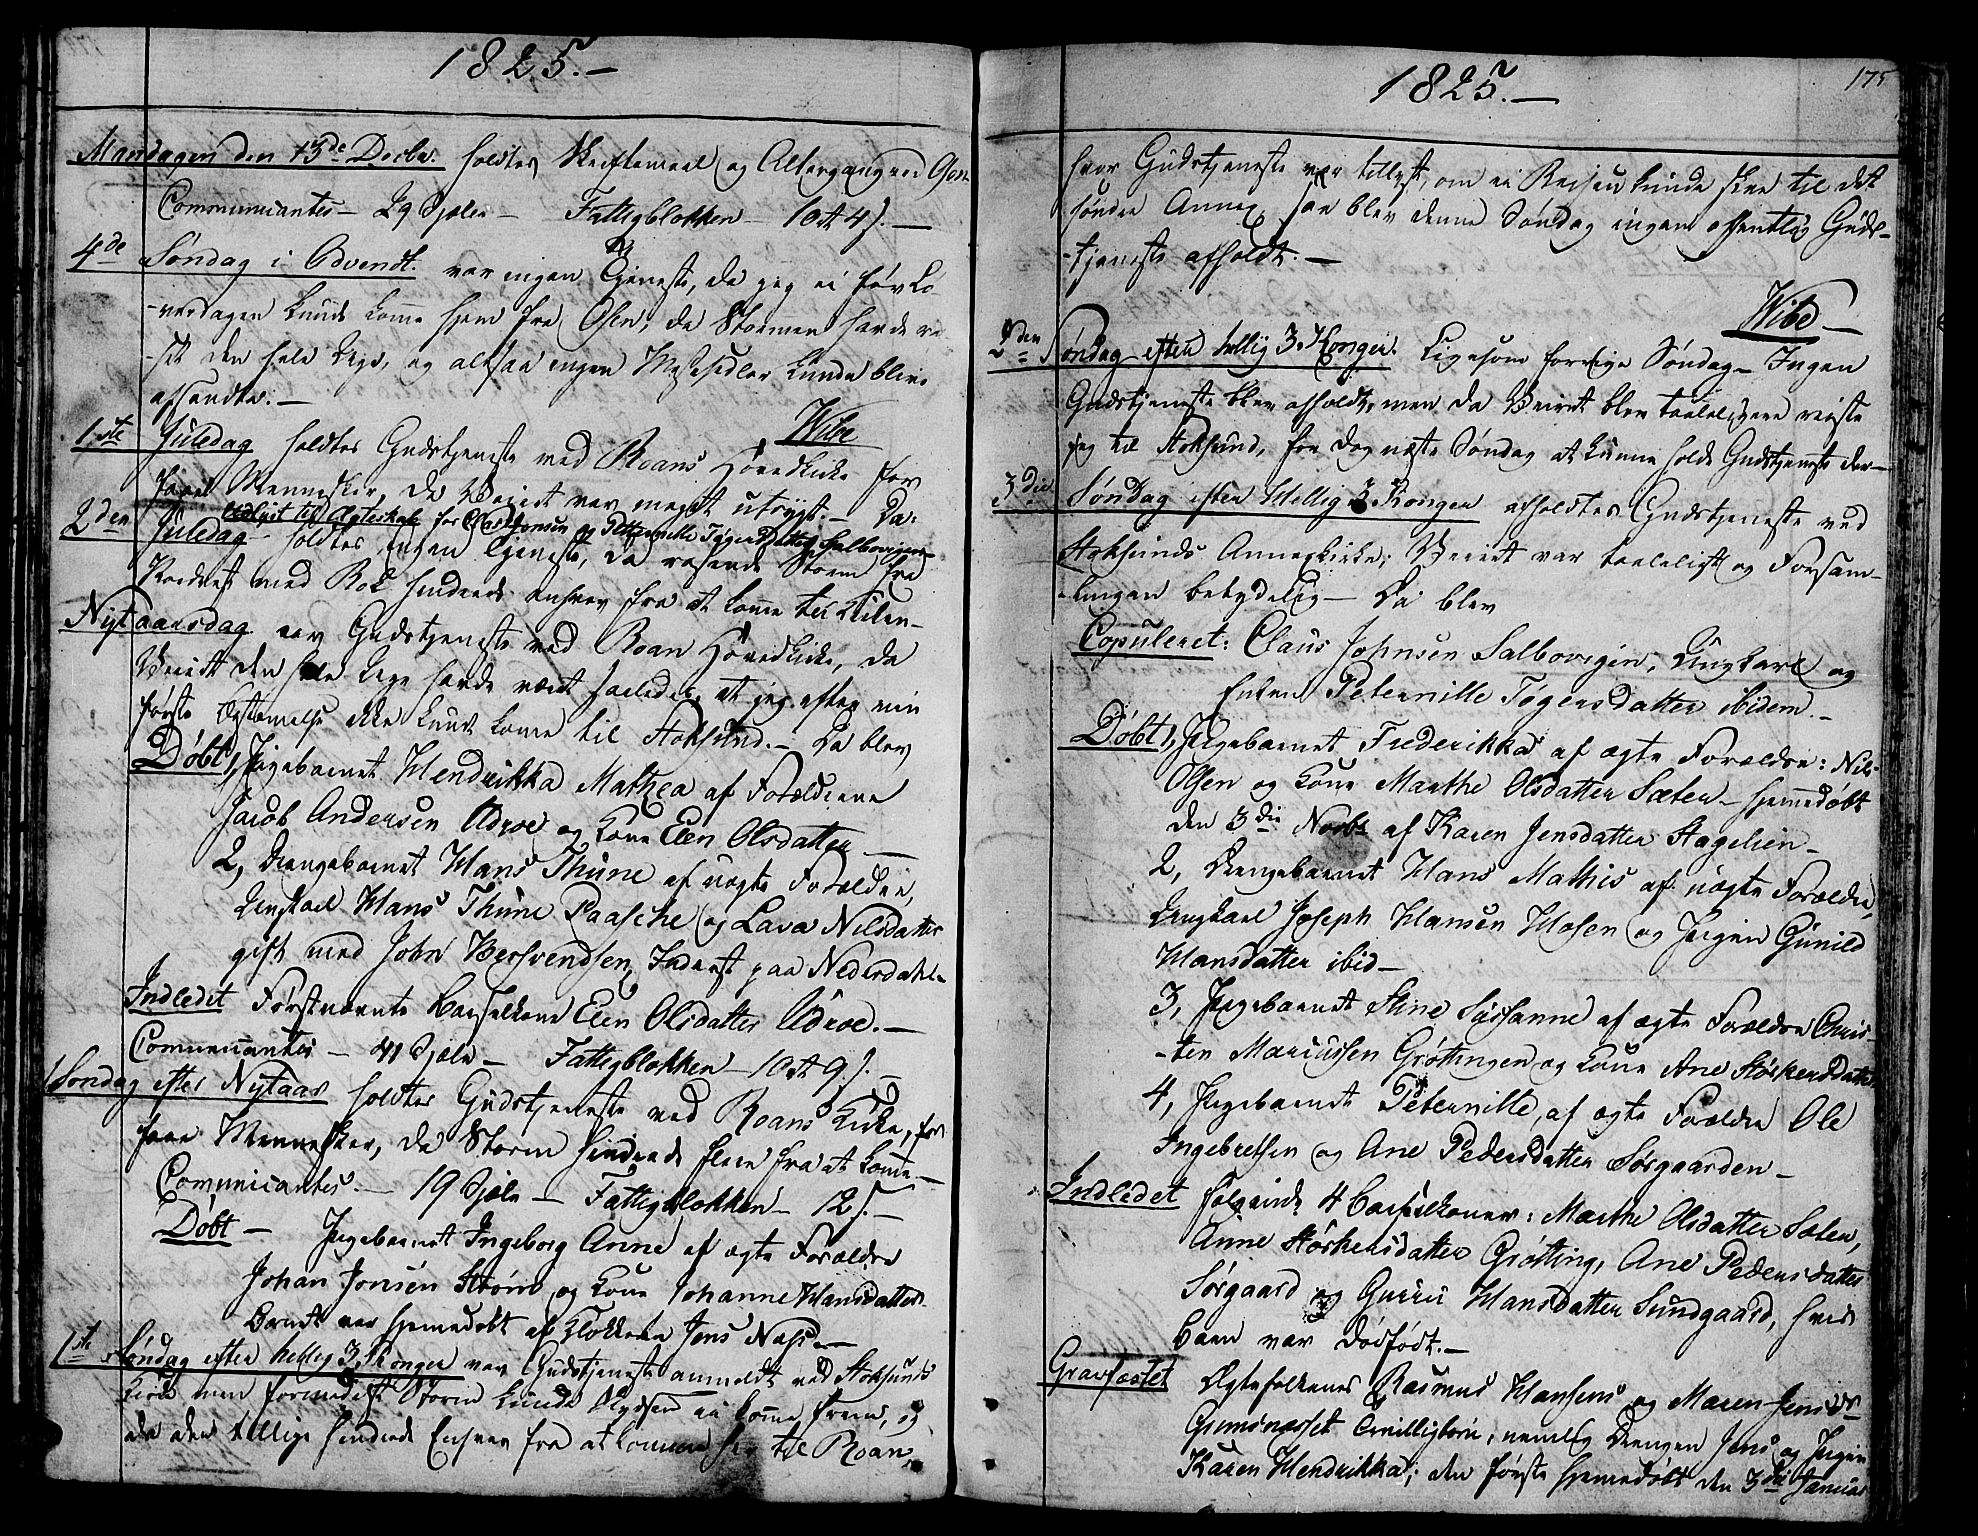 1825.—
Mandagen den 13de Decbr. holdtes Skriftemaal og Altergang ved Osen
Communicantes — 29 Sjæle — Fattigblokken — 1 ort 4 s.—
4de Søndag i Advendt. var ingen Tjeneste, da jeg ei før Lø-
-verdagen kunde komme hjem fra Osen, da Stormen havde ra-
-set den hele Uge, og altsaa ingen Messesedler kunde blive
afsendte.—
Wibe
1ste Juledag holdtes Gudstjeneste ved Roans Hovedkirke for
faae Mennesker, da Veiret var meget utrygt. — Da
tillyst til Ægteskab for Claus Jonsen og Petternelle Tøgersdatter Salbovigen
2den Juledag holdtes ingen Tjeneste, da rasende Storm fra
Nordvest med Rok hindrede enhver fra at komme til Kirken—
Nytaarsdag var Gudstjeneste ved Roan Hovedkirke, da
Veiret den hele Uge havde været saaledes, at jeg efter min
første Bestemelse ikke kunde komme til Stoksund.— Da blev
Døbt 1, Pigebarnet Hendrikka Mathea af Forældrene
Jacob Andersen Udroe og Kone Elen Olsdatter—
2, Drengebarnet Hans Thüne af uægte Forældre,
Ungkarl Hans Thüne Paasche og Lava Nilsdatter
gift med John Bersvendsen Inderst paa Nederdahl-
Indledet Førstnævnte Barselkone Elen Olsdatter Udroe.—
Communicantes — 41 Sjæle — Fattigblokken — 1 ort 9 s.—
Søndag efter Nytaar holdtes Gudstjeneste ved Roans Kirke, for
faae Mennesker, da Storm hindrede flere fra at komme—
Comunicantes. — 19 Sjæle — Fattigblokken — 12 s.—
Døbt — Pigebarnet Ingeborg Anne af ægte Forældre
Johan Jonsen Strøm og Kone Johanne Hansdatter
Barnet var hjemmedøbt af Klokkeren Jens Næss.—
1ste Søndag efter hellig 3 Konger var Gudstjeneste anmeldt ved Stoksunds
Kirke men formedelst Storm kunde Skydsen ei komme frem, og
da den tillige hindrede Enhver fra at komme til Roan,
1825.—
175
hvor Gudstjeneste var tillyst, om ei Reisen kunde skee til det
søndre Annex, saa blev denne Søndag ingen offentlig Guds-
-tjeneste afholdt.—
Wibe—
2den Søndag efter hellig 3 Konger. Ligesom forrige Søndag — Ingen
Gudstjeneste blev afholdt, men da Veiret blev taaleligere reiste
jeg til Stoksund, for dog næste Søndag at kunne holde Gudstjeneste der—
3die Søndag efter Hellig 3 Konger afholdtes Gudstjeneste ved
Stoksunds Annexkirke; Veiret var taaleligt og Forsam-
-lingen betydelig — Da blev
Copuleret: Claus Johnsen Salbovigen, Ungkarl og
Enken Peternille Tøgersdatter ibidem.—
Døbt 1, Pigebarnet Frederikka af ægte Forældre: Nils
Olsen og Kone Marthe Olsdatter Sæter — hjemmedøbt
den 3die Novbr af Karen Jensdatter Hagelien—
2, Drengebarnet Hans Mathis af uægte Forældre,
Ungkarl Joseph Hansen Hosen og Pigen Gunild
Hansdatter ibid—
3, Pigebarnet Stine Susanne af ægte Forældre Chris-
-ten Marcussen Grøttingen og Kone Ane Størkersdatter
4, Pigebarnet Peternille, af ægte Forældre Ole
Ingebretsen og Ane Pedersdatter Sørgaarden—
Indledet Følgende 4 Barselkoner: Marthe Olsdatter Sæter,
Anne Størkersdatter Grøtting, Ane Pedersdatter
Sørgaard og Gurru Hansdatter Sundgaard, hvis
Barn var Dødfødt.—
Gravfæstet Ægtefolkenes Rasmus Hansens og Maren Jensdr
Gumsnæsset Tvillingbørn, nemlig Drengen Jens og Pigen
Karen Hendrikka; den første hjemmedøbt den 3die Januar